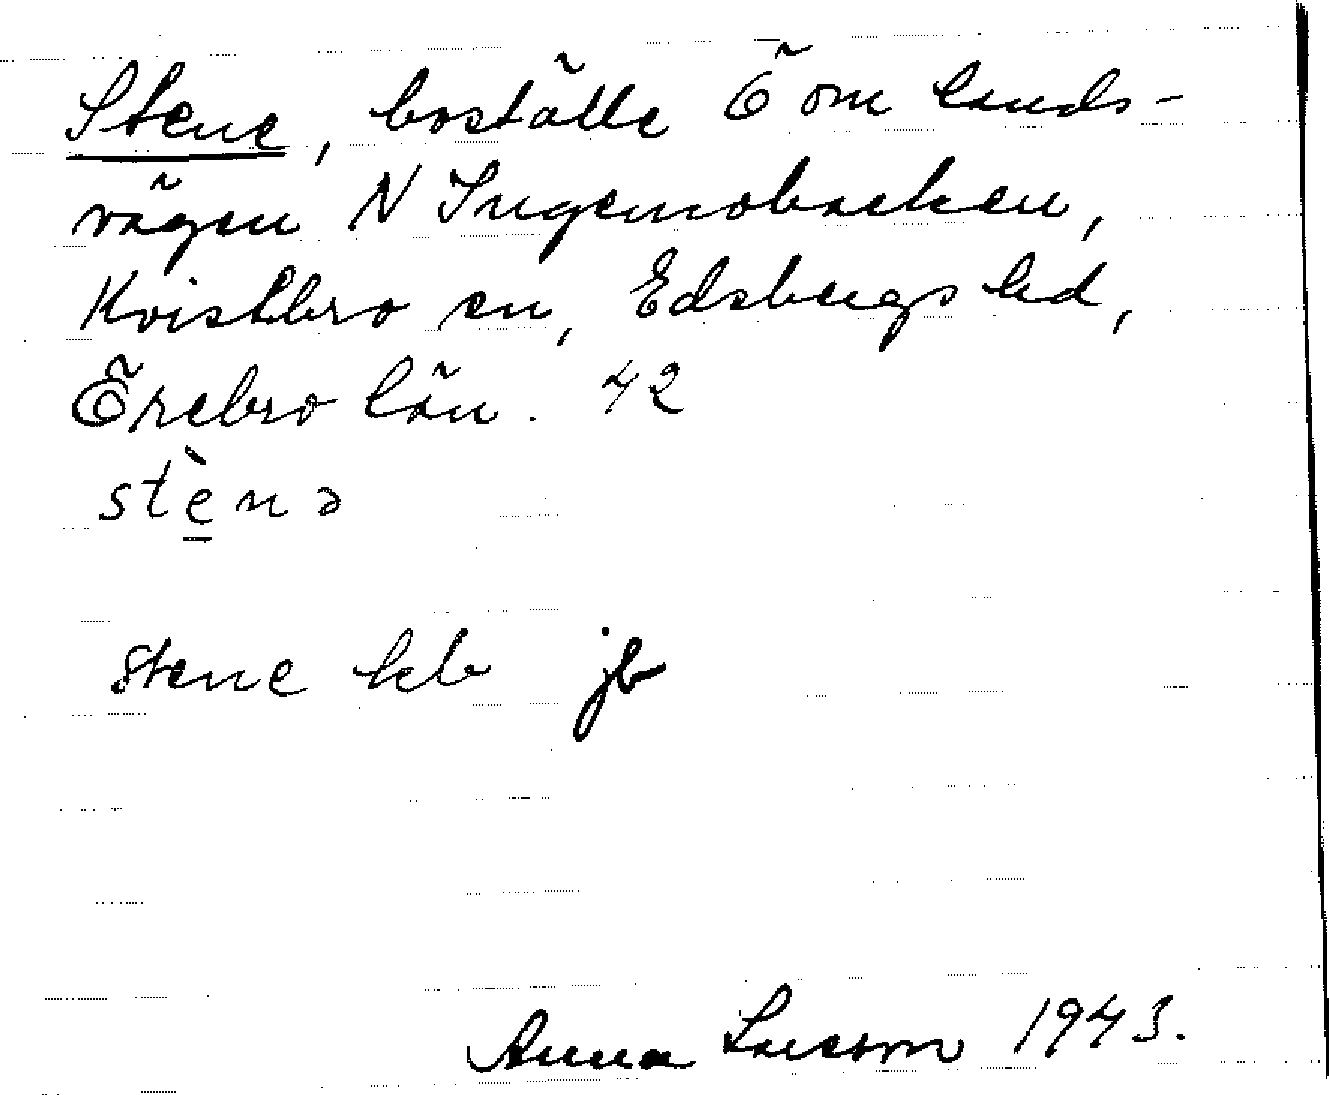 Stene, boställe Ö om lands-
vägen N Ingemobacken,
Kvistbro sn, Edsbergs hd,
Örebro län. 42
stènə
Stene hcb jb
Anna Larsson 1943.